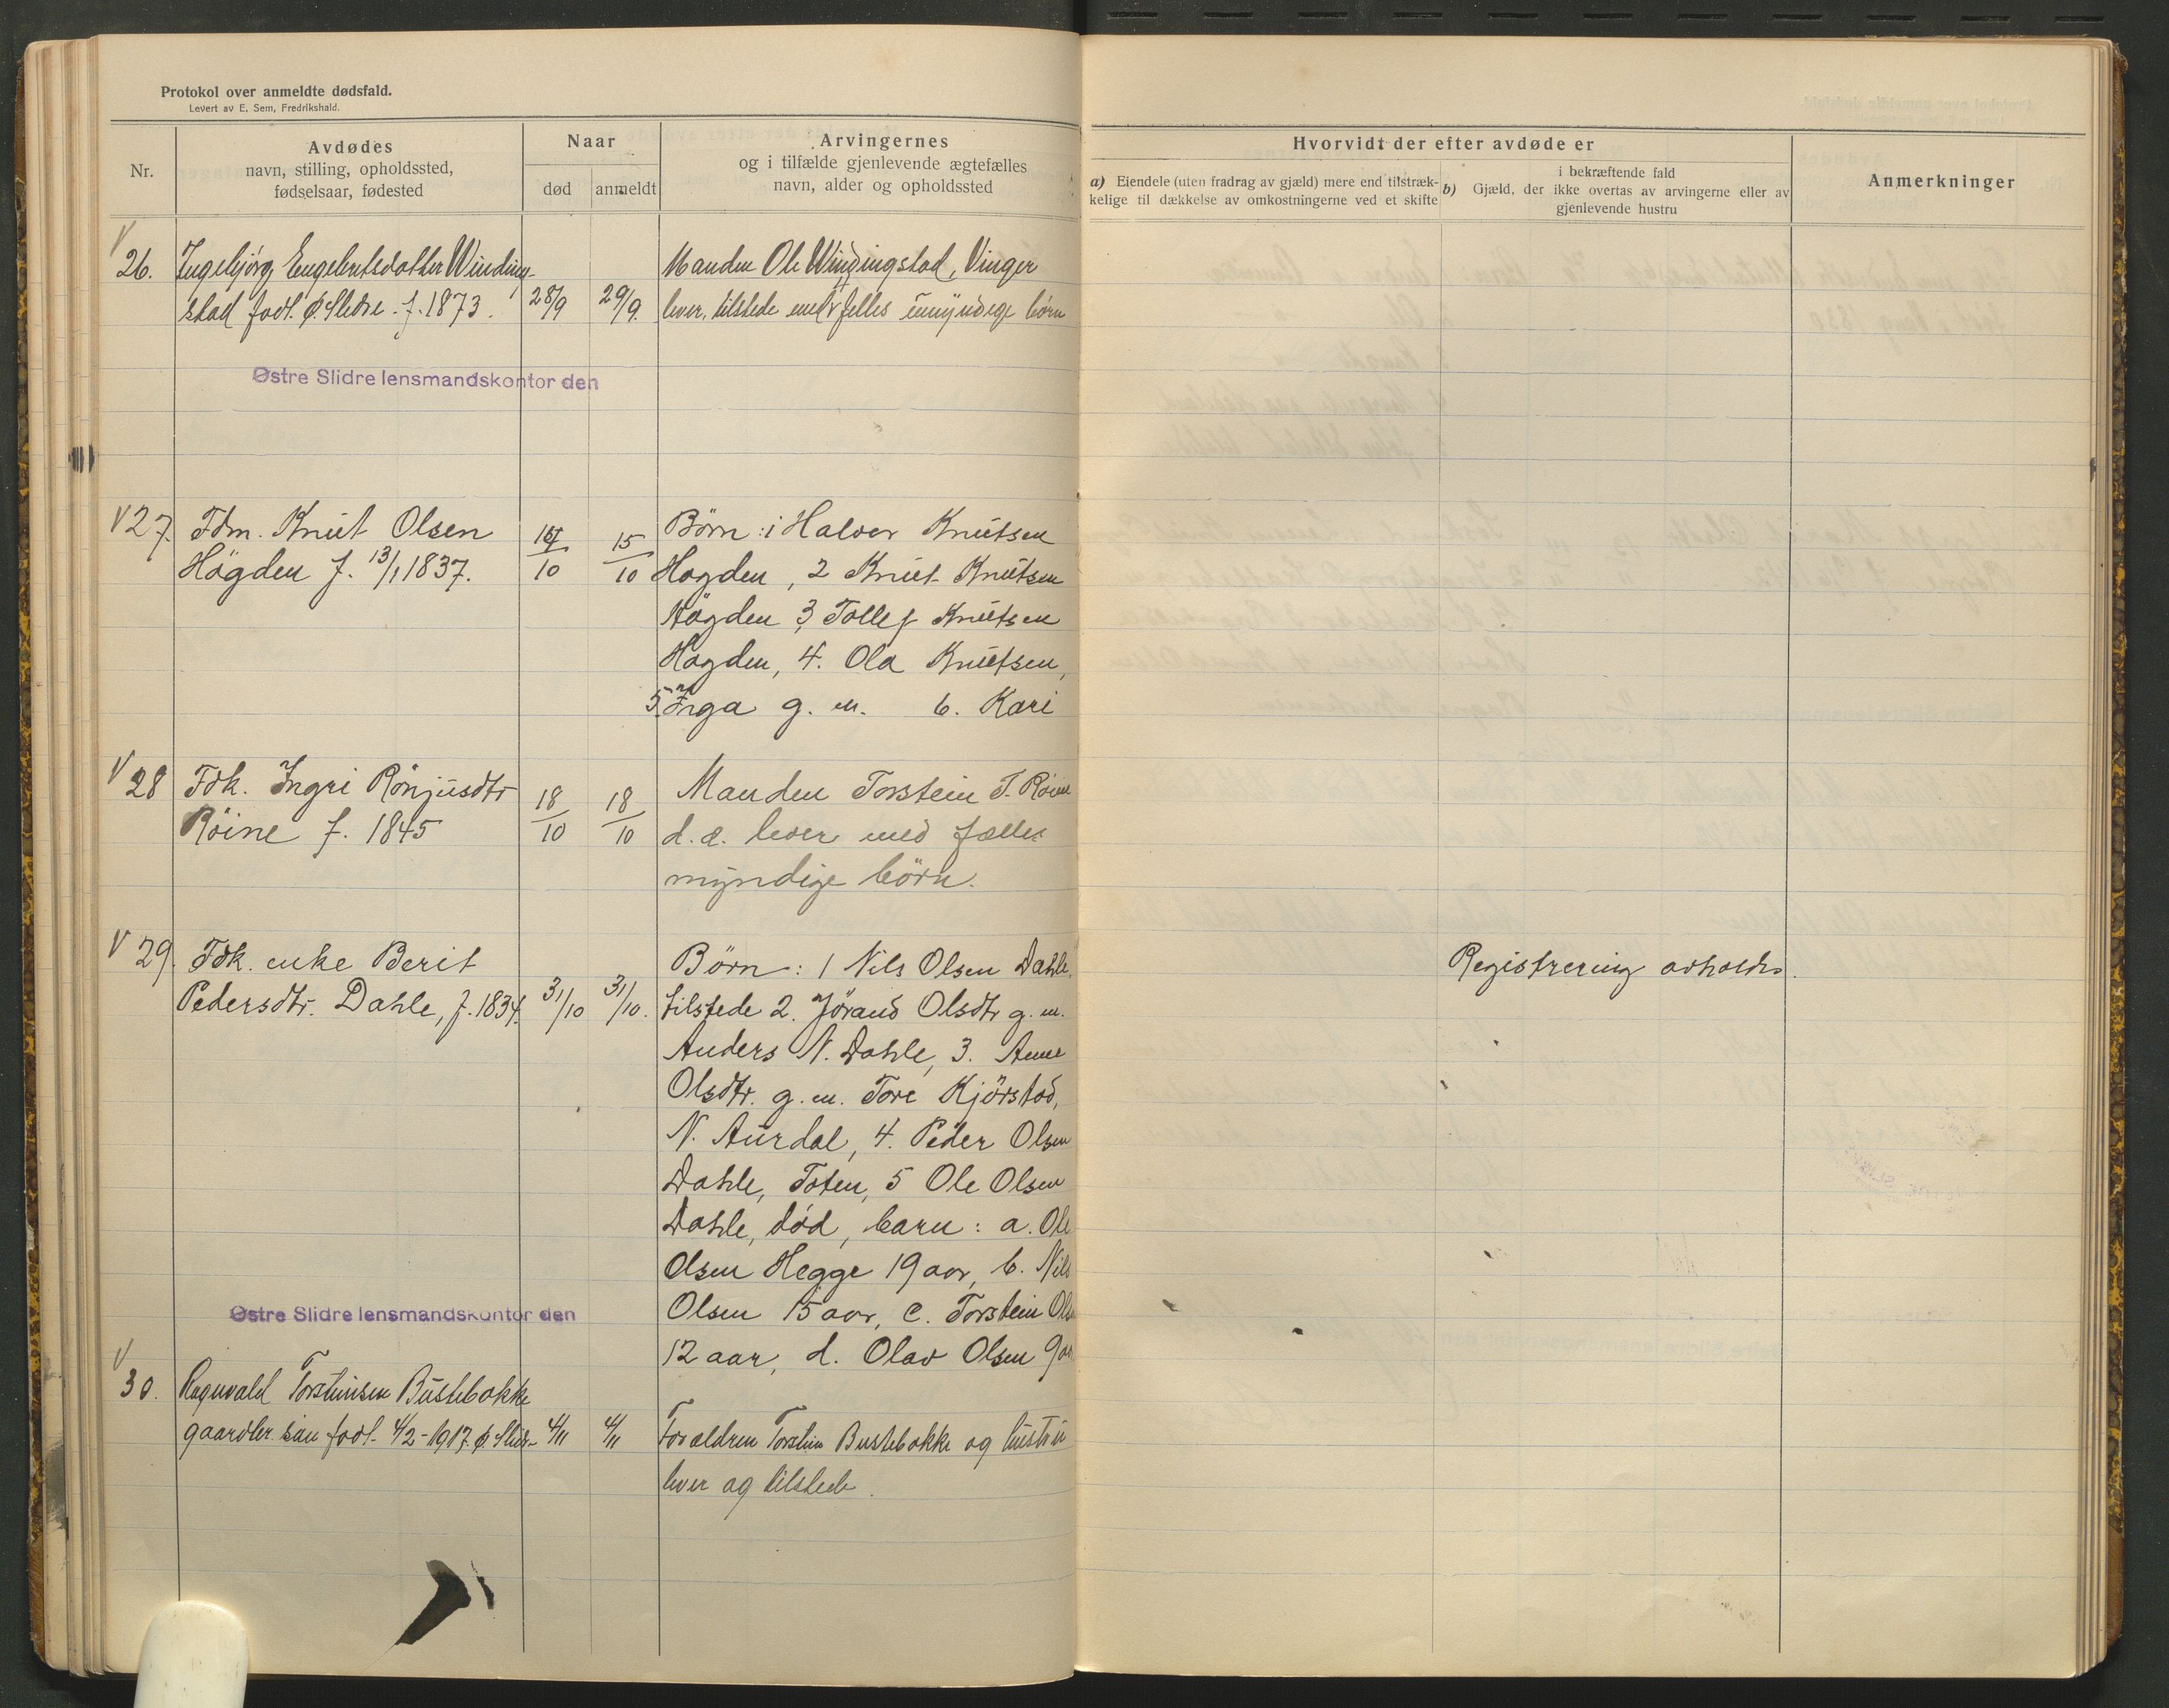 Protokol over anmeldte dødsfald.
Levert av E. Sem, Fredrikshald.
Nr.
Avdødes
navn, stilling, opholdssted,
fødselsaar, fødested
Naar
død
anmeldt
Arvingernes
og i tilfælde gjenlevende ægtefælles
navn, alder og opholdssted
Hvorvidt der efter avdøde er
a) Eiendele (uten fradrag av gjæld) mere end tilstræk-
kelige til dækkelse av omkostningerne ved et skifte
i bekræftende fald
b) Gjæld, der ikke overtas av arvingerne eller av
gjenlevende hustru
Anmerkninger
26. Ingebjörg Engebretsdatter Winding-
stad født Ø. Slidre. f. 1873.
28/9
29/9.
Manden Ole Windingstad, Vinger
lever, tilstede med felles umyndige börn
Østre Slidre lensmandskontor den
27. Fdm. Knut Olsen
Högden f. 13/1 1837.
10
15/10
Börn: 1 Halvor Knutsen
Högden, 2 Knut Knutsen
Högden 3, Tollef Knutsen
Högden, 4. Ola Knutsen,
5. Inga g. m. 6. Kari
28 Fdk. Ingri Rönjusdtr
Röine f. 1845
18/10
18/10
Manden Torstein T. Röine
d. æ. lever med fælles
myndige börn.
29. Fdk. enke Berit
Pedersdtr. Dahle, f. 1834.
31/10
31/10.
Börn: 1 Nils Olsen Dahle,
tilstede 2. Jörand Olsdtr g. m.
Anders N. Dahle, 3. Anne
Olsdtr. g. m. Tore Kjörstad,
N. Aurdal, 4. Peder Olsen
Dahle, Toten, 5 Ole Olsen
Dahle, död, barn: a. Ole
Olsen Hegge 19 aar, b. Nils
Olsen 15 aar, c. Torstein Olsen
12 aar, d. Olav Olsen 9 aar
Registrering avholdes.
Østre Slidre lensmandskontor den
30. Ragnvald Torsteinsen Bustebakke
gaardbr. søn født 4/2-1917 Ø. Slidr-
4/11
4/11
Foraldren Torstein Bustebakke og hustru
lever og tilstede.